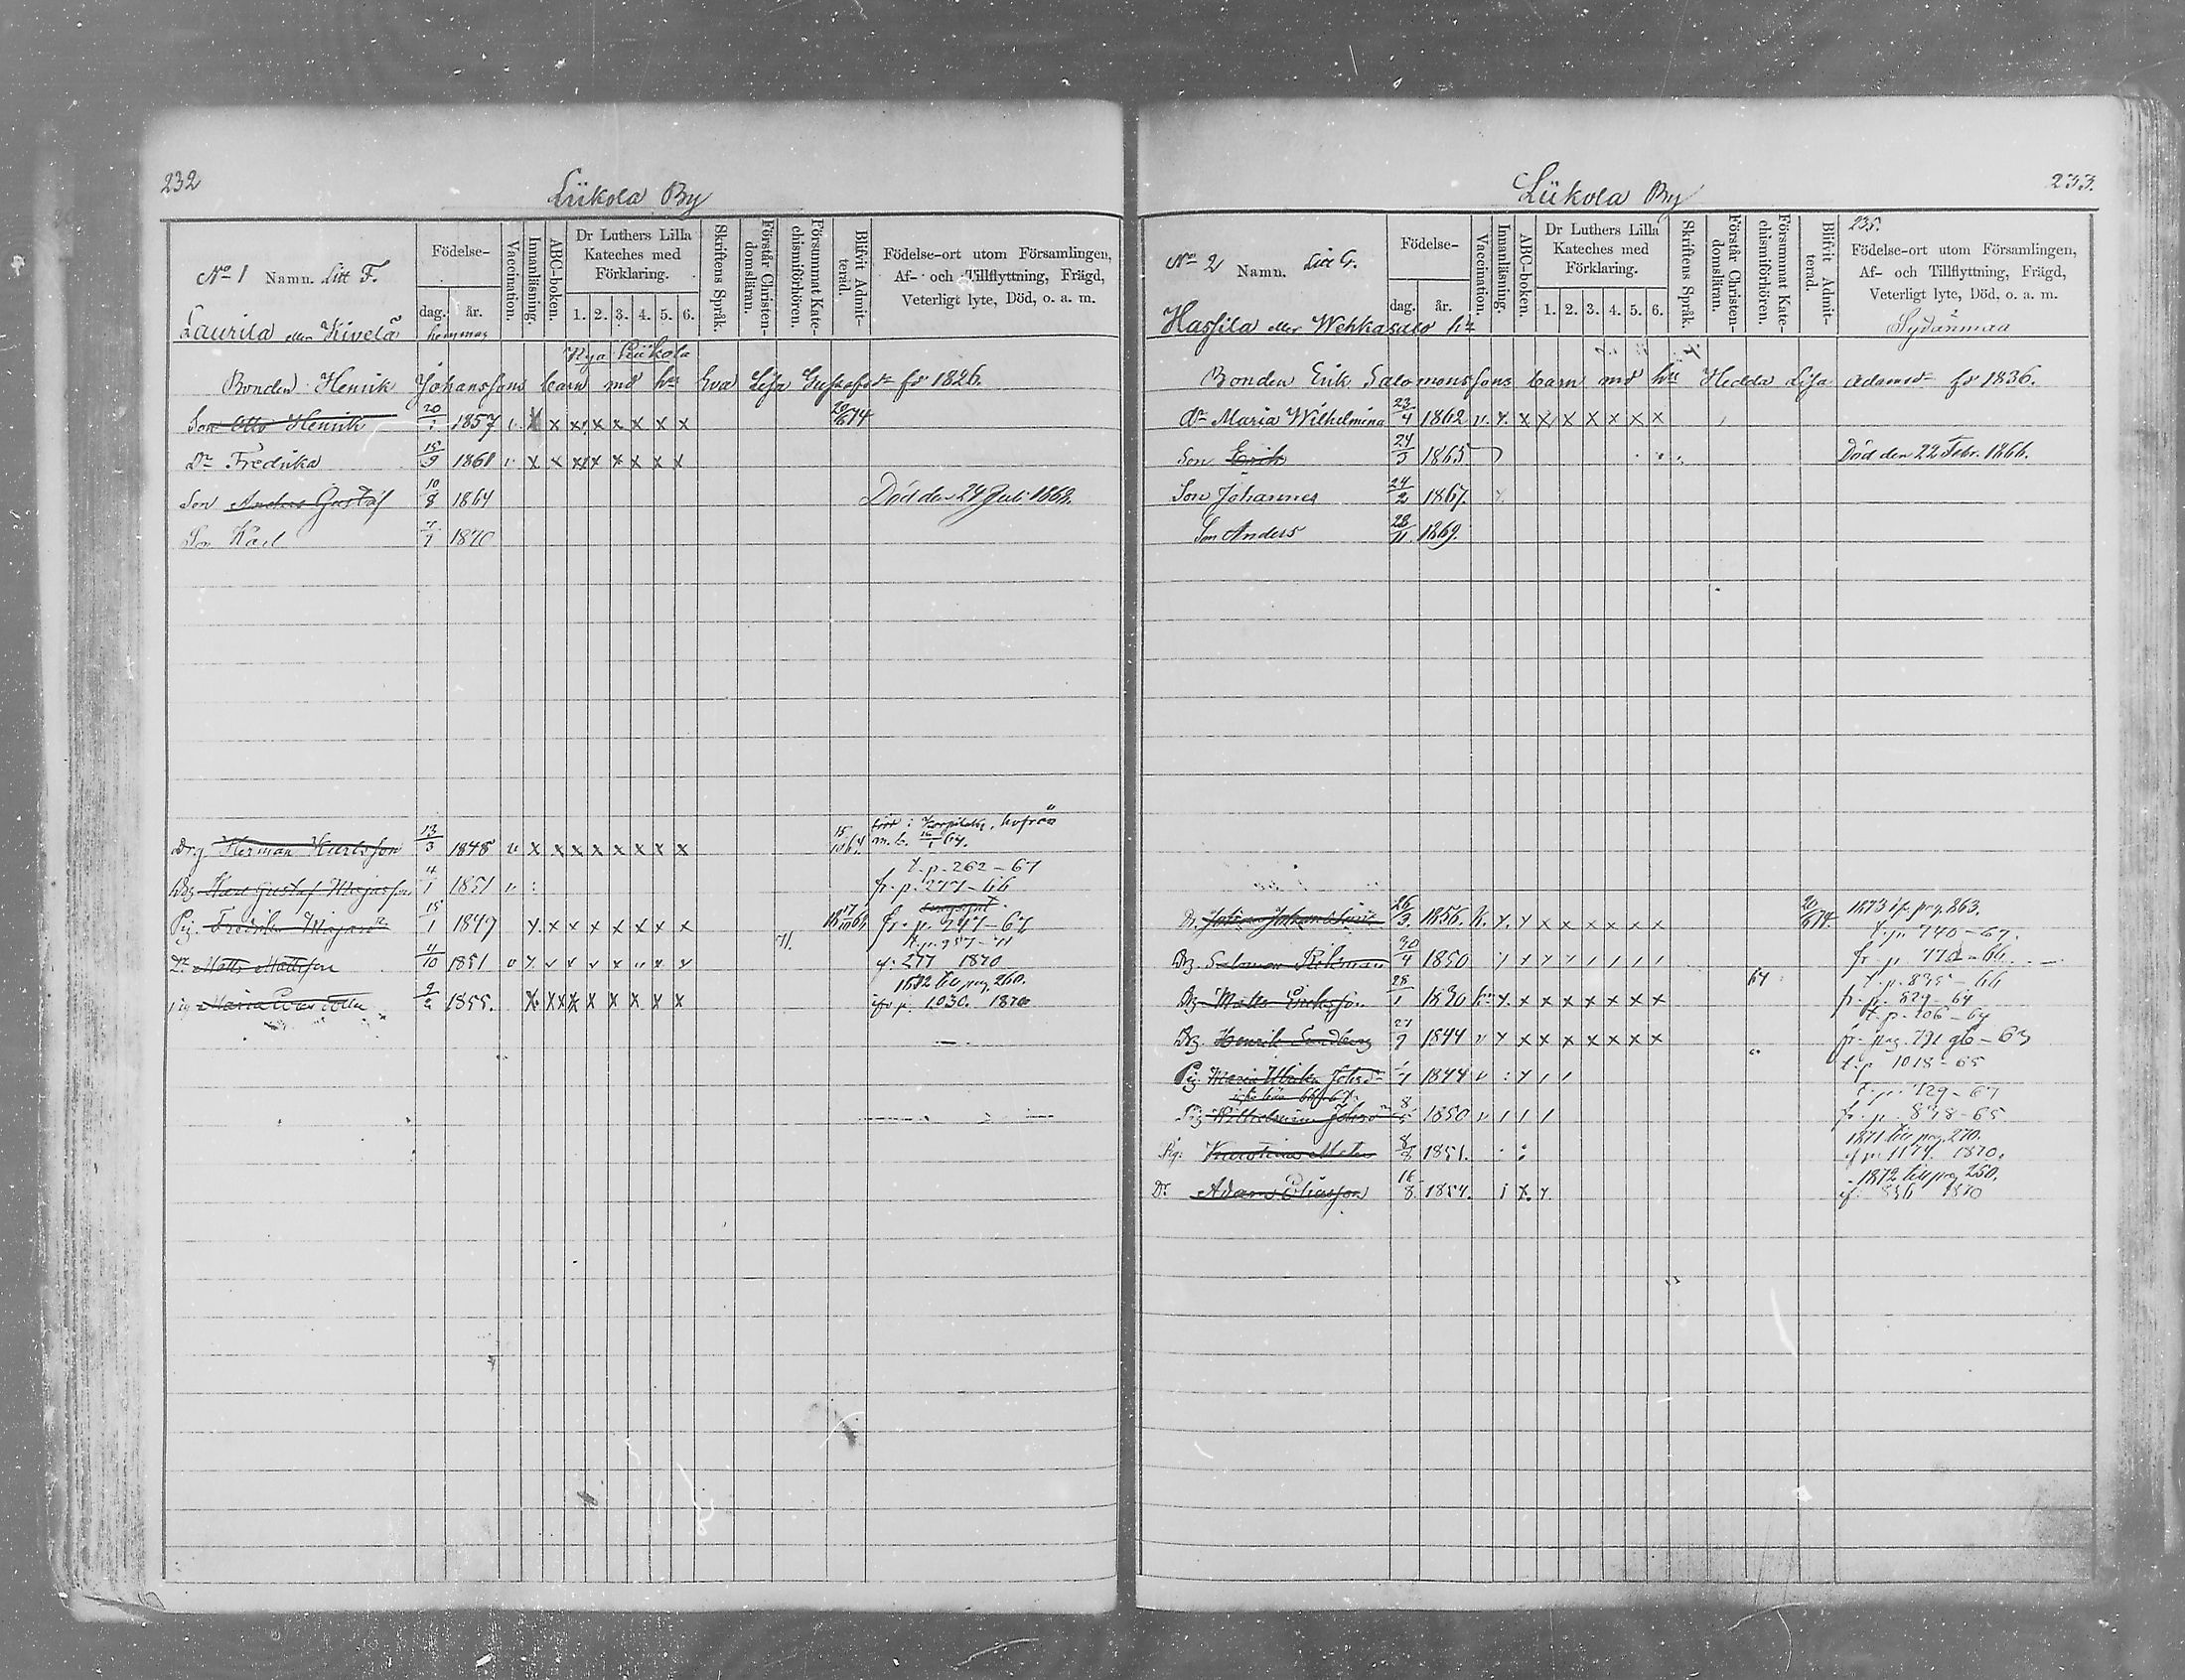 232
Liikola By
Nº 1 Namn. Litt F.
Födelse-
dag. år.
Vaccination.
Innanläsning.
ABC-boken.
Dr Luthers Lilla
Kateches med
Förklaring.
1. 2. 3. 4. 5. 6.
Skriftens Språk.
Förstår Christen-
domsläran.
Försummat Kate-
chismiförhören.
Blifvit Admit-
terad.
Födelse-ort utom Församlingen,
Af- och Tillflyttning, Frägd,
Veterligt lyte, Död, o. a. m.
Laurila eller Kivelä hemman
Nya Liikola
Bonden Henrik Johanssons barn md hu Eva Lisa Gustafsdr fd 1826.
Son Otto Henrik 20 1857 v. x x x x x x x x 20/6 74
Dr Fredrika 15/9 1861 v x x x x x x x x
Son Anders Gustaf 10/8 1864 Död den 24 Juli 1868.
Son Karl 1870
Drg Herman Karlsson 13/3 1848 v x x x x x x x x
t. p. 262 - 67
Drg Karl Gustaf Majasson 4/1 1851 v fr. p. 277 - 66
Pig. Fredrika Majasdr 15/1 1849 x x x x x x x x fr. p. 247 - 67
71. t. p. 957 - 71
Dr Matts Mattsson 4/10 1851 v 277 1870
1872 till pag. 260.
pig Maria Evas doter 9/2 1855. x x x x x x x x p. 1030. 1870
233.
Liikola By
Nº 2 Namn. Litt G.
Födelse-
dag. år.
Vaccination.
Innanläsning.
ABC-boken.
Dr Luthers Lilla
Kateches med
Förklaring.
1. 2. 3. 4. 5. 6.
Skriftens Språk.
Förstår Christen-
domsläran.
Försummat Kate-
chismiförhören.
Blifvit Admit-
terad.
235.
Födelse-ort utom Församlingen,
Af- och Tillflyttning, Frägd,
Veterligt lyte, Död, o. a. m.
Sydänmaa
Hassila eller Wehkasalo hn
Bonden Erik Salomonssons barn md hu Hedda Lisa Adamsdr fd 1836.
Dr Maria Wilhelmina 23/4 1862 v. x. x x x x x x x
Son Erik 24/3 1865 Död den 22 Febr. 1866.
Son Johannes 24/2 1867.
Son Anders 28/11. 1869.
1873 pag. 863.
Dr. Johan Johansson 26/3. 1856. x x x x x x 20/6 74. t. p. 740 - 67.
Drg. Salomon 30/4 1850 fr. p. 772 - 66
t. p. 835 - 66
Drg Matts Eriksson 1830 x x x x x x x 64 fr. p. 829 - 64
t. p. 206 - 64
Drg. Henrik Sundberg 1844 v x x x x x x x fr. pag. 791 - 63
t. p 1018 - 65
Pig. Maria Ulrika Johsdr 1844
t. p. 729 - 67
Pig Wilhelmina Johsdr 8 1850 v fr. p. 878 - 65
1871 till pag. 270.
Pig. Karolina 8/8 1851. 1179. 1870.
1872 till pag. 250.
Dr Adam Eliasson 16/8 1854. 836 1870